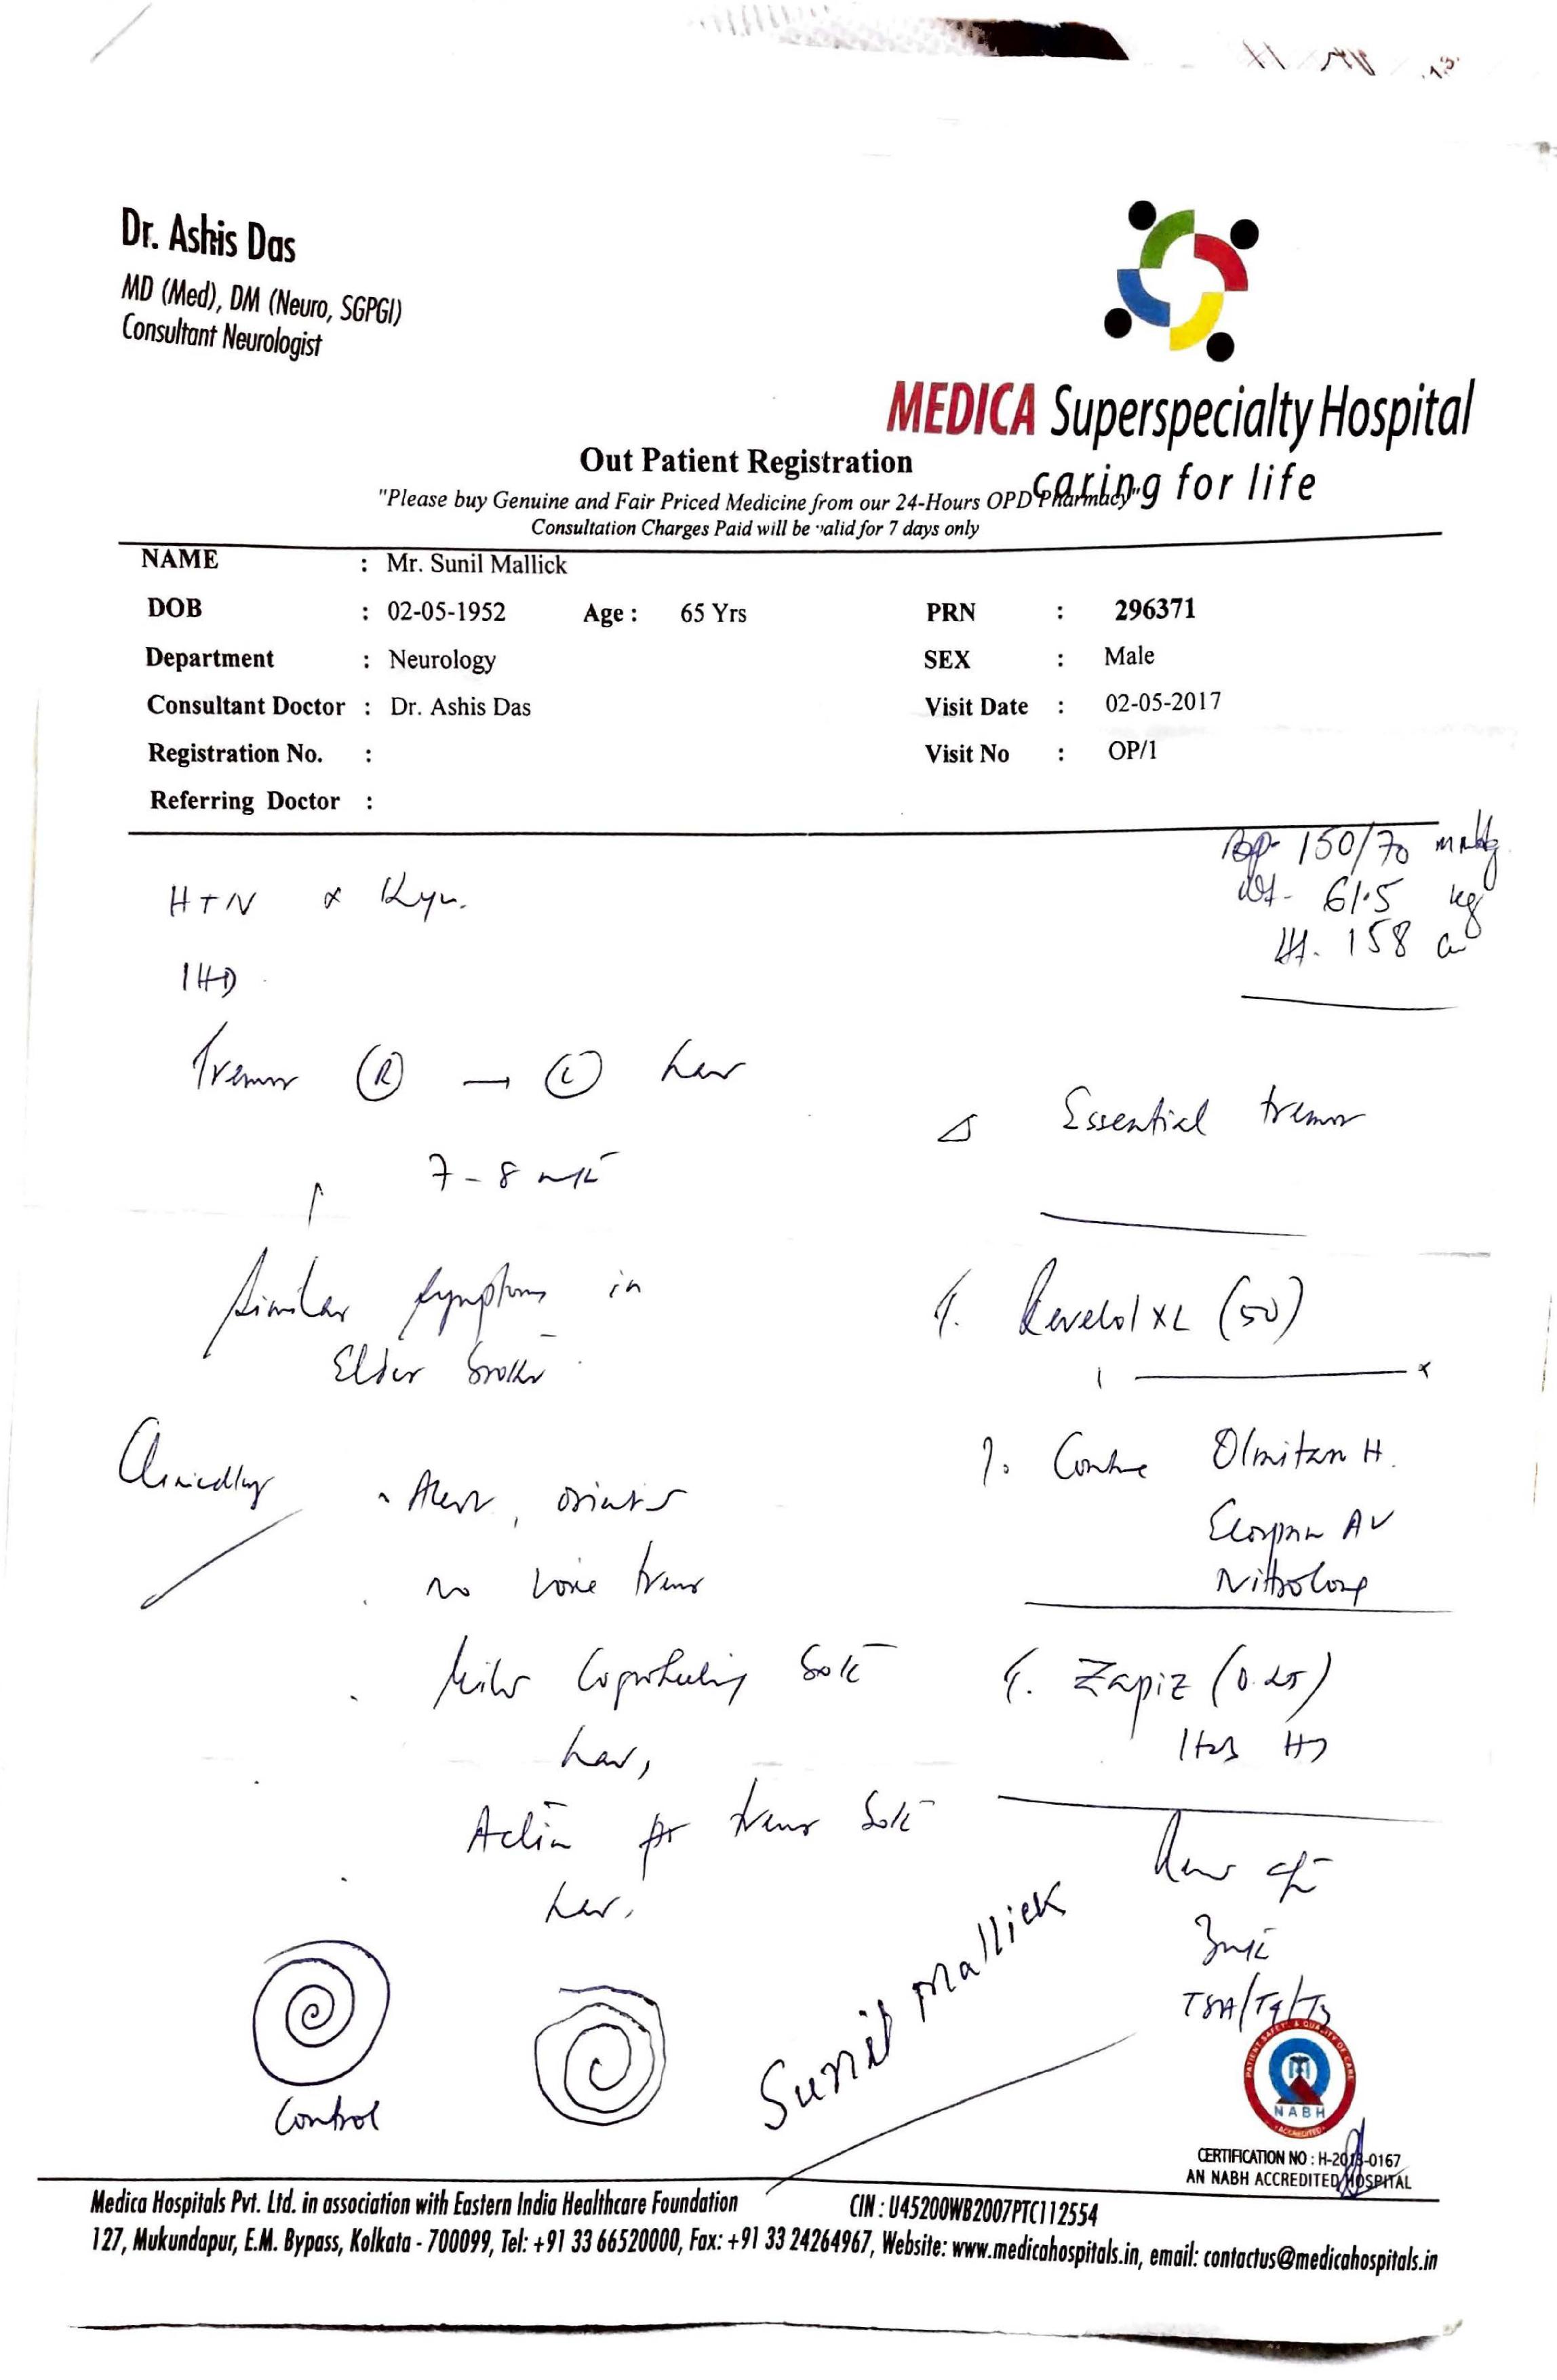 Dr. Ashis Das
MD (Med), DM (Neuro, SGPGI)
Consultant Neurologist
MEDICA Superspecialty Hospital
caring for life
Out Patient Registration
"Please buy Genuine and Fair Priced Medicine from our 24-Hours OPD Pharmacy"
Consultation Charges Paid will be valid for 7 days only
NAME : Mr. Sunil Mallick
DOB : 02-05-1952 Age : 65 Yrs PRN : 296371
Department : Neurology SEX : Male
Consultant Doctor : Dr. Ashis Das Visit Date : 02-05-2017
Registration No. : Visit No : OP/1
Referring Doctor :
BP- 150/70 mmHg
Wt- 61.5 kg
Ht. 158 cm
HTN
IHD
Tremor (R) → (L)
7-8
Similar symptoms in
Elder brother
Clinically
Alert,
no voice tremor
Action tremor
Control
Δ Essential tremor
T. Revelol XL (50)
1 x
Olmitan H.
Ecosprin AV
Nitrolong
T. Zapiz (0.25)
1 tab HS
TSH/T4/T3
Sunil Mallick
PATIENT SAFETY & QUALITY OF CARE
NABH
ACCREDITED
CERTIFICATION NO : H-2013-0167
AN NABH ACCREDITED HOSPITAL
Medica Hospitals Pvt. Ltd. in association with Eastern India Healthcare Foundation CIN : U45200WB2007PTC112554
127, Mukundapur, E.M. Bypass, Kolkata - 700099, Tel: +91 33 66520000, Fax: +91 33 24264967, Website: www.medicahospitals.in, email: contactus@medicahospitals.in